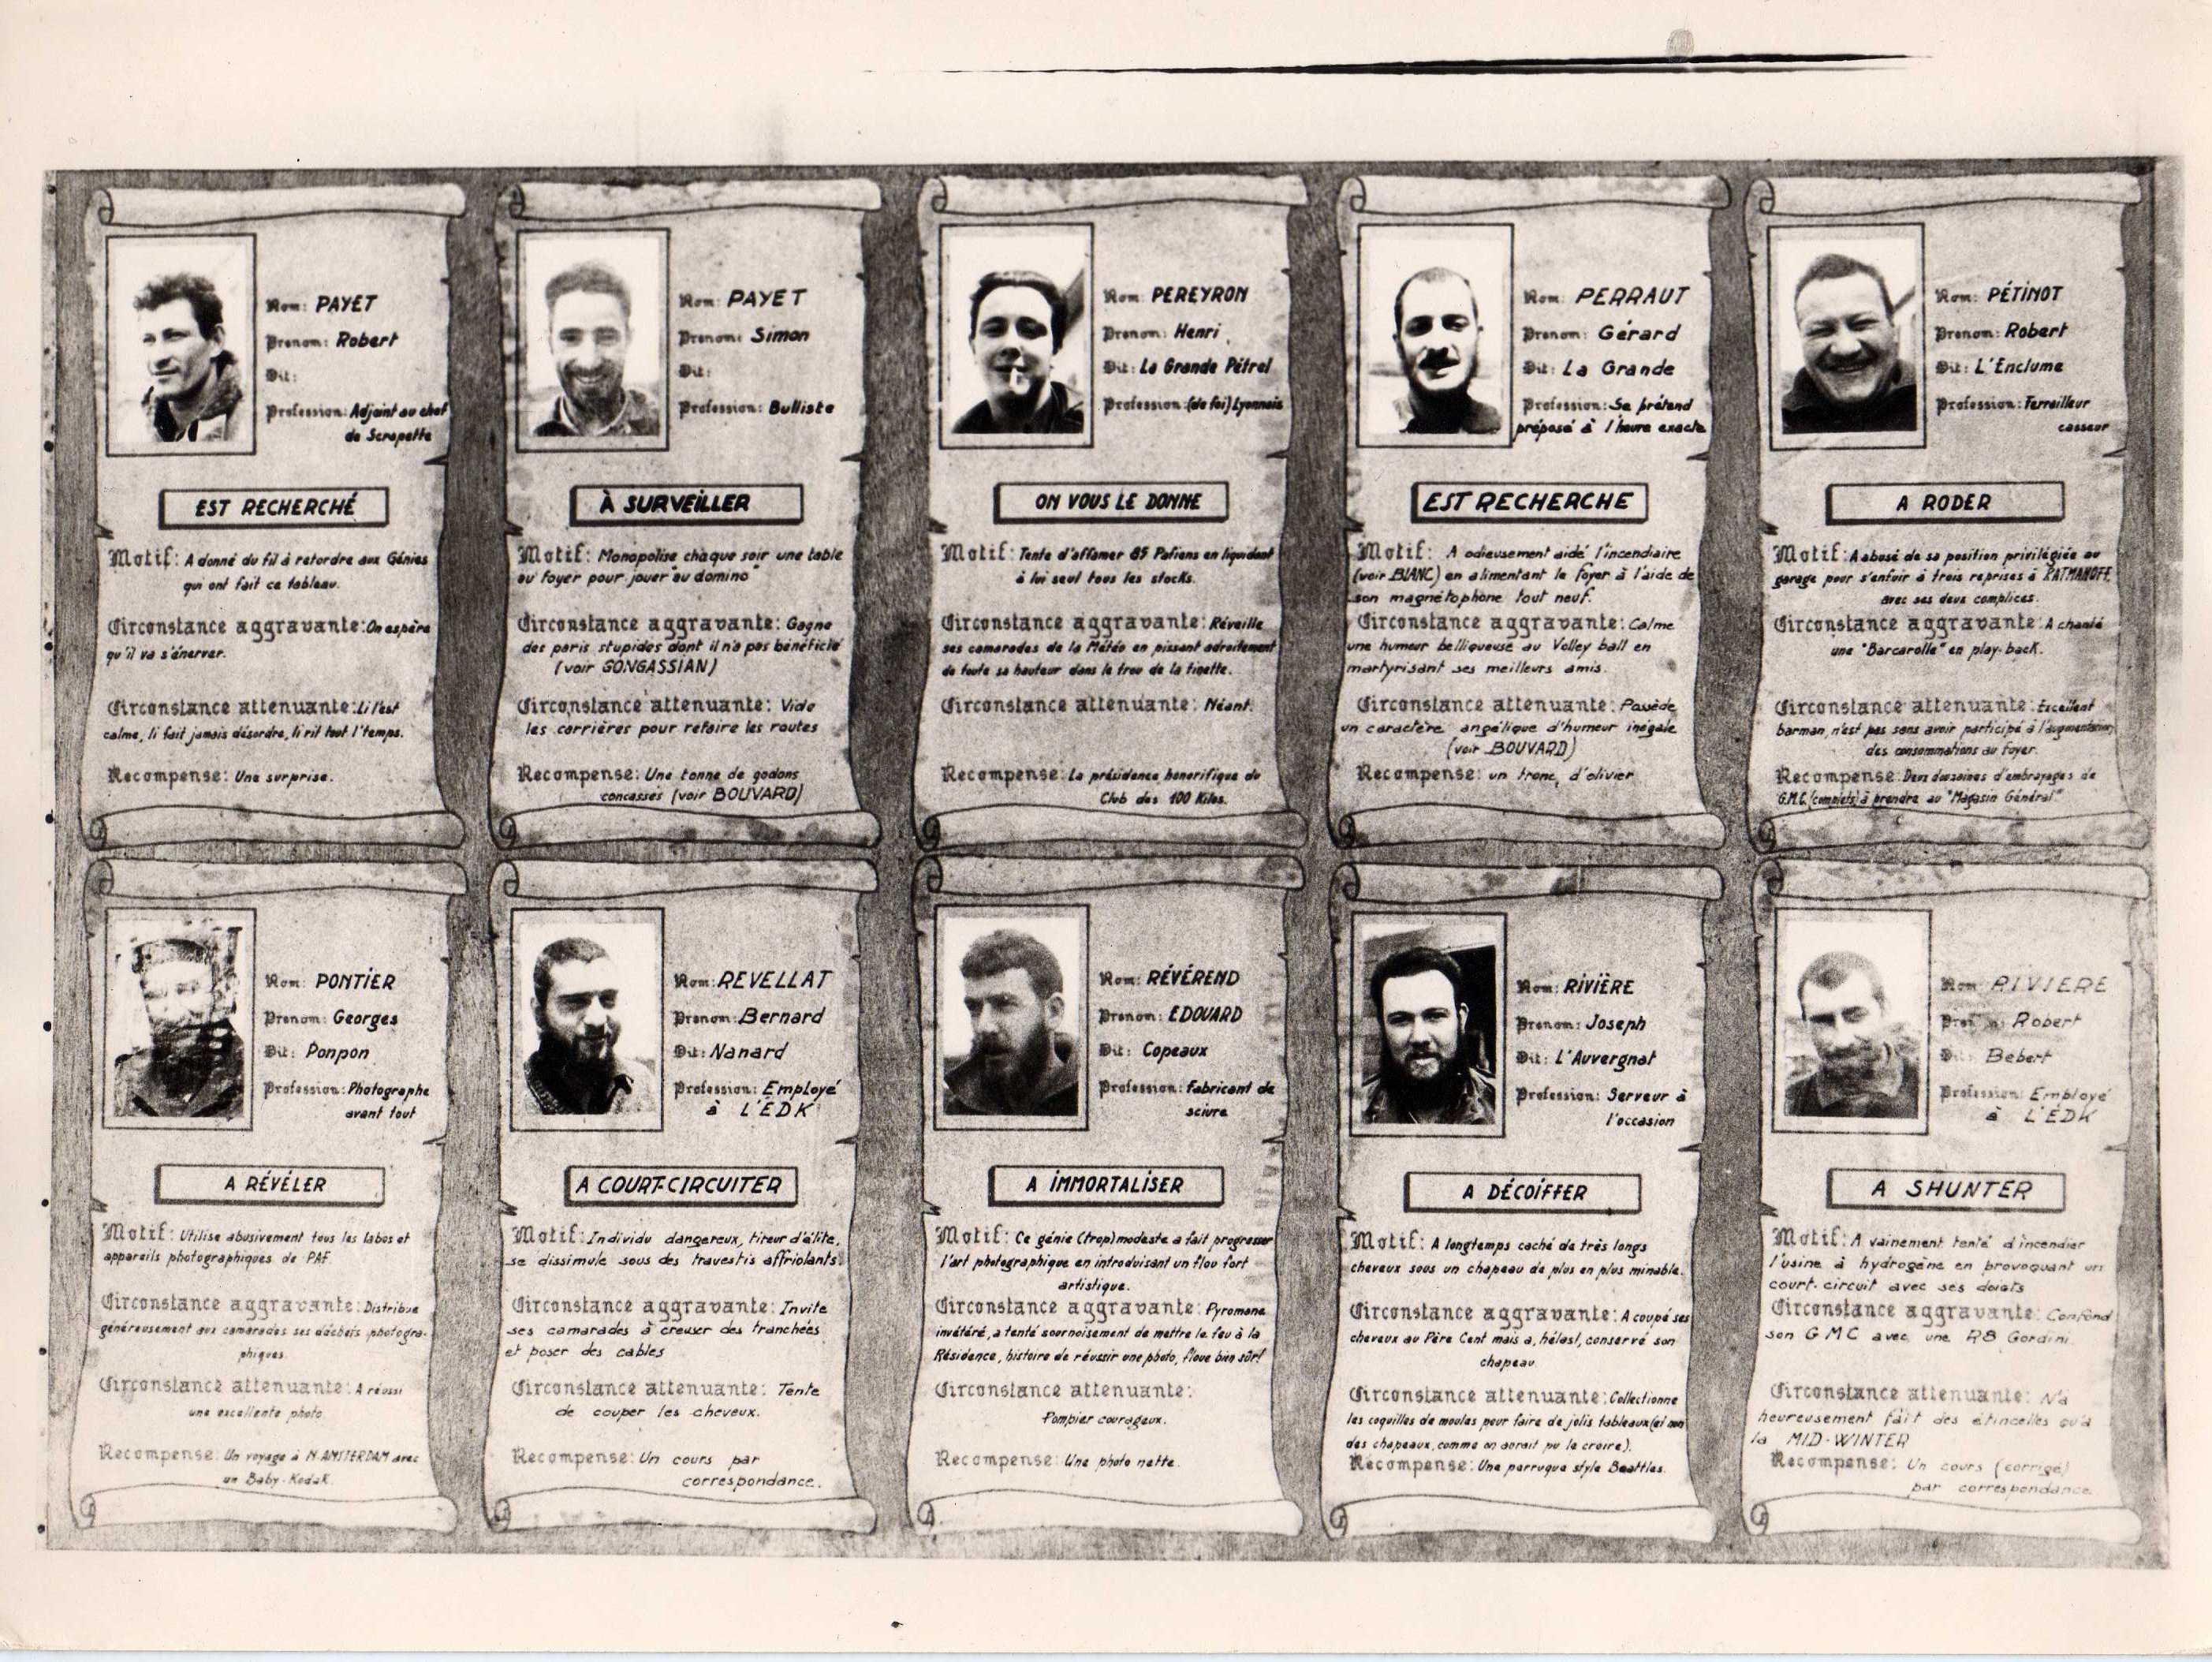 Nom: PAYET
Prenom: Robert
Dit:
Profession: Adjoint au chef
de Scrapette
EST RECHERCHÉ
Motif: A donné du fil à retordre aux Génies
qui ont fait ce tableau.
Circonstance aggravante: On espère
qu'il va s'énerver.
Circonstance attenuante: Li l'est
calme, li fait jamais désordre, li rit tout l'temps.
Recompense: Une surprise.
Nom: PAYET
Prenom: Simon
Dit:
Profession: Bulliste
À SURVEILLER
Motif: Monopolise chaque soir une table
au foyer pour jouer "au domino"
Circonstance aggravante: Gagne
des paris stupides dont il n'a pas bénéficié
(voir GONGASSIAN)
Circonstance attenuante: Vide
les carrières pour refaire les routes
Recompense: Une tonne de godons
concassés (voir BOUVARD)
Nom: PEREYRON
Prenom: Henri
Dit: La Grande Pétrel
Profession: (de foi) Lyonnais
ON VOUS LE DONNE
Motif: Tente d'affamer 85 Pafiens en liquidant
à lui seul tous les stocks.
Circonstance aggravante: Réveille
ses camarades de la Météo en pissant adroitement
de toute sa hauteur dans le trou de la tinette.
Circonstance attenuante: Néant.
Recompense: La présidence honorifique du
Club des 100 Kilos.
Nom: PERRAUT
Prenom: Gérard
Dit: La Grande
Profession: Se prétend
préposé à l'heure exacte
EST RECHERCHE
Motif: A odieusement aidé l'incendiaire
(voir BLANC) en alimentant le foyer à l'aide de
son magnétophone tout neuf.
Circonstance aggravante: Calme
une humeur belliqueuse au Volley ball en
martyrisant ses meilleurs amis.
Circonstance attenuante: Possède
un caractère angélique d'humeur inégale
(voir BOUVARD)
Recompense: un tronc d'olivier
Nom: PÉTINOT
Prenom: Robert
Dit: L'Enclume
Profession: Ferrailleur
casseur
A RODER
Motif: A abusé de sa position privilégiée au
garage pour s'enfuir à trois reprises à RATMANOFF
avec ses deux complices.
Circonstance aggravante: A chanté
une "Barcarolle" en play-back.
Circonstance attenuante: Excellent
barman, n'est pas sans avoir participé à l'augmentation
des consommations au foyer.
Recompense: Deux douzaines d'embrayages de
G.M.C. (complets) à prendre au "Magasin Général"
Nom: PONTIER
Prenom: Georges
Dit: Ponpon
Profession: Photographe
avant tout
A RÉVÉLER
Motif: Utilise abusivement tous les labos et
appareils photographiques de PAF
Circonstance aggravante: Distribue
généreusement aux camarades ses déchets photogra-
phiques.
Circonstance attenuante: A réussi
une excellente photo
Recompense: Un voyage à N.AMSTERDAM avec
un Baby-Kodak.
Nom: REVELLAT
Prenom: Bernard
Dit: Nanard
Profession: Employé
à L'EDK
A COURT-CIRCUITER
Motif: Individu dangereux, tireur d'élite,
se dissimule sous des travestis affriolants.
Circonstance aggravante: Invite
ses camarades à creuser des tranchées
et poser des cables
Circonstance attenuante: Tente
de couper les cheveux.
Recompense: Un cours par
correspondance.
Nom: RÉVÉREND
Prenom: EDOUARD
Dit: Copeaux
Profession: Fabricant de
sciure
A IMMORTALISER
Motif: Ce génie (trop) modeste a fait progresser
l'art photographique en introduisant un flou fort
artistique.
Circonstance aggravante: Pyromane
invétéré, a tenté sournoisement de mettre le feu à la
Résidence, histoire de réussir une photo, floue bien sûr!
Circonstance attenuante:
Pompier courageux.
Recompense: Une photo nette.
Nom: RIVIÈRE
Prenom: Joseph
Dit: L'Auvergnat
Profession: Serveur à
l'occasion
A DÉCOIFFER
Motif: A longtemps caché de très longs
cheveux sous un chapeau de plus en plus minable.
Circonstance aggravante: A coupé ses
cheveux au Père Cent mais a, hélas!, conservé son
chapeau
Circonstance attenuante: Collectionne
les coquilles de moules pour faire de jolis tableaux (et non
des chapeaux, comme on aurait pu le croire).
Recompense: Une perruque style Beattles.
Nom: RIVIERE
Prenom: Robert
Dit: Bebert
Profession: Employé
à L'EDK
A SHUNTER
Motif: A vainement tenté d'incendier
l'usine à hydrogène en provoquant un
court-circuit avec ses doigts
Circonstance aggravante: Confond
son GMC avec une R8 Gordini.
Circonstance attenuante: N'a
heureusement fait des étincelles qu'à
la MID-WINTER
Recompense: Un cours (corrigé)
par correspondance.